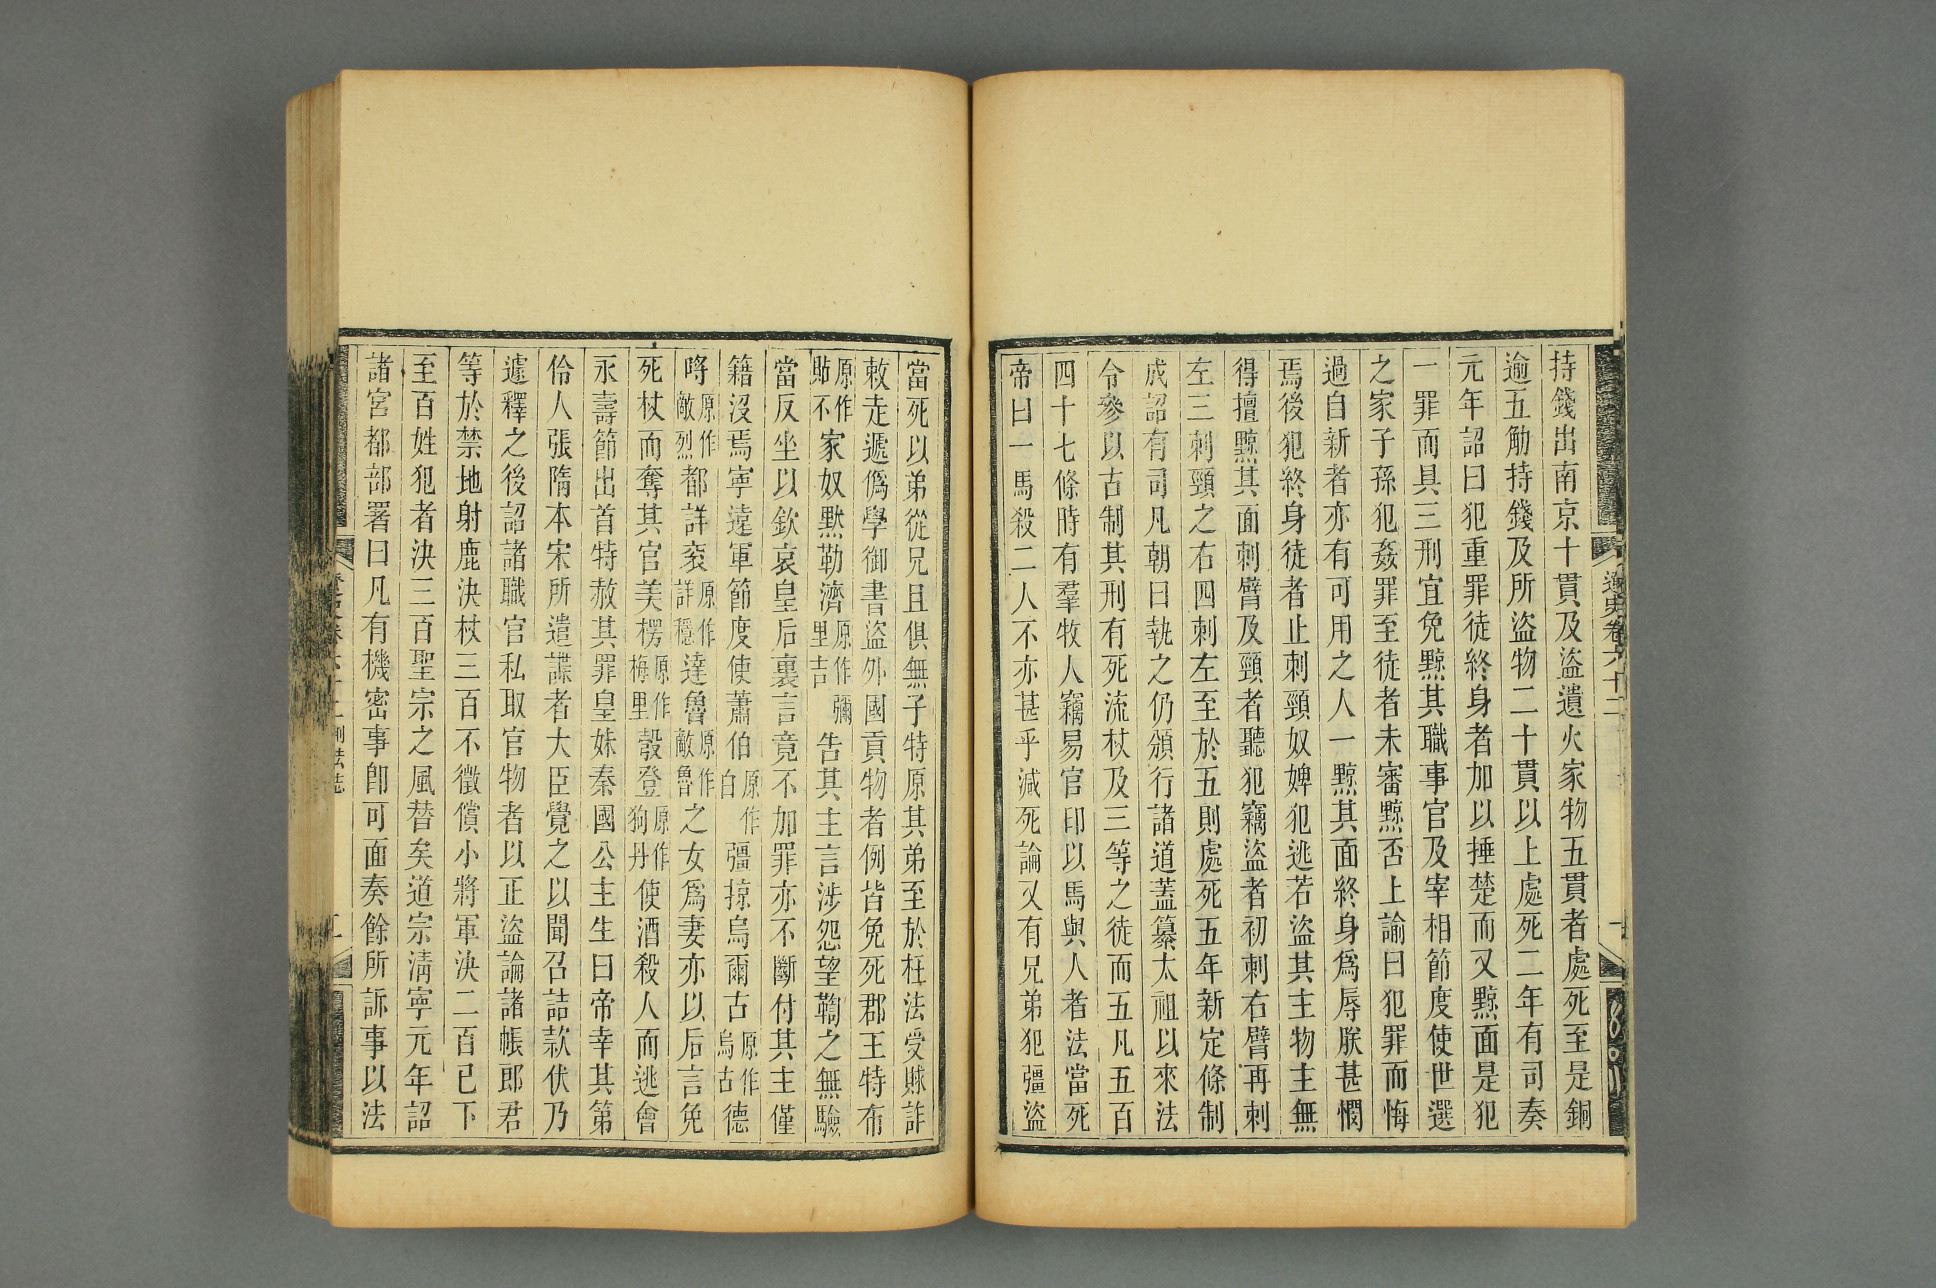 持錢出南京十貫及盜遺火家物五貫者處死至是銅
逾五觔持錢及所盜物二十貫以上處死二年有司奏
元年詔曰犯重罪徒終身者加以捶楚而又黥面是犯
一罪而具三刑宜免黥其職事官及宰相節度使世選
之家子孫犯姦罪至徒者未審黥否上諭曰犯罪而悔
過自新者亦有可用之人一黥其面終身爲辱朕甚憫
焉後犯終身徒者止刺頸奴婢犯逃若盜其主物主無
得擅黥其面刺臂及頸者聽犯竊盜者初刺右臂再刺
左三刺頸之右四刺左至於五則處死五年新定條制
成詔有司凡朝日執之仍頒行諸道蓋纂太祖以來法
令參以古制其刑有死流杖及三等之徒而五凡五百
四十七條時有羣牧人竊易官印以馬與人者法當死
帝曰一馬殺二人不亦甚乎減死論又有兄弟犯彊盜
遼史卷六十二
當死以弟從兄且俱無子特原其弟至於枉法受賕詐
敕走遞僞學御書盜外國貢物者例皆免死郡王特布
原作貼不家奴默勒濟原作彌里吉告其主言涉怨望鞫之無驗
當反坐以欽哀皇后裏言竟不加罪亦不斷付其主僅
籍沒焉寧遠軍節度使蕭伯原作白彊掠烏爾古原作烏古德
哷原作敵烈都詳衮原作詳穩達魯原作敵魯之女爲妻亦以后言免
死杖而奪其官美楞原作梅里彀登原作狗丹使酒殺人而逃會
永壽節出首特赦其罪皇妹秦國公主生日帝幸其第
伶人張隋本宋所遣諜者大臣覺之以聞召詰款伏乃
遽釋之後詔諸職官私取官物者以正盜論諸帳郎君
等於禁地射鹿決杖三百不徵償小將軍決二百已下
至百姓犯者決三百聖宗之風替矣道宗清寧元年詔
諸宮都部署曰凡有機密事卽可面奏餘所訴事以法
刑法志